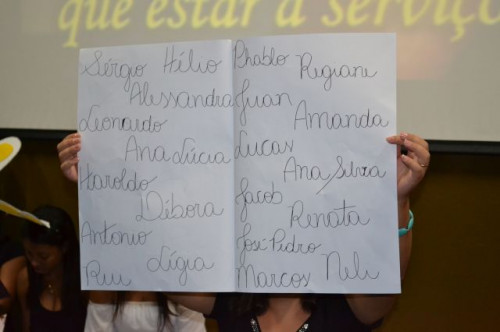 que estar a serviço
Sérgio Hélio
Alessandra
Leonardo
Ana Lúcia
Haroldo
Débora
Antonio
Lígia
Rui
Phablo Regiane
Juan
Amanda
Lucas
Ana Silvia
Jacob
Renata
José Pedro
Marcos Neli